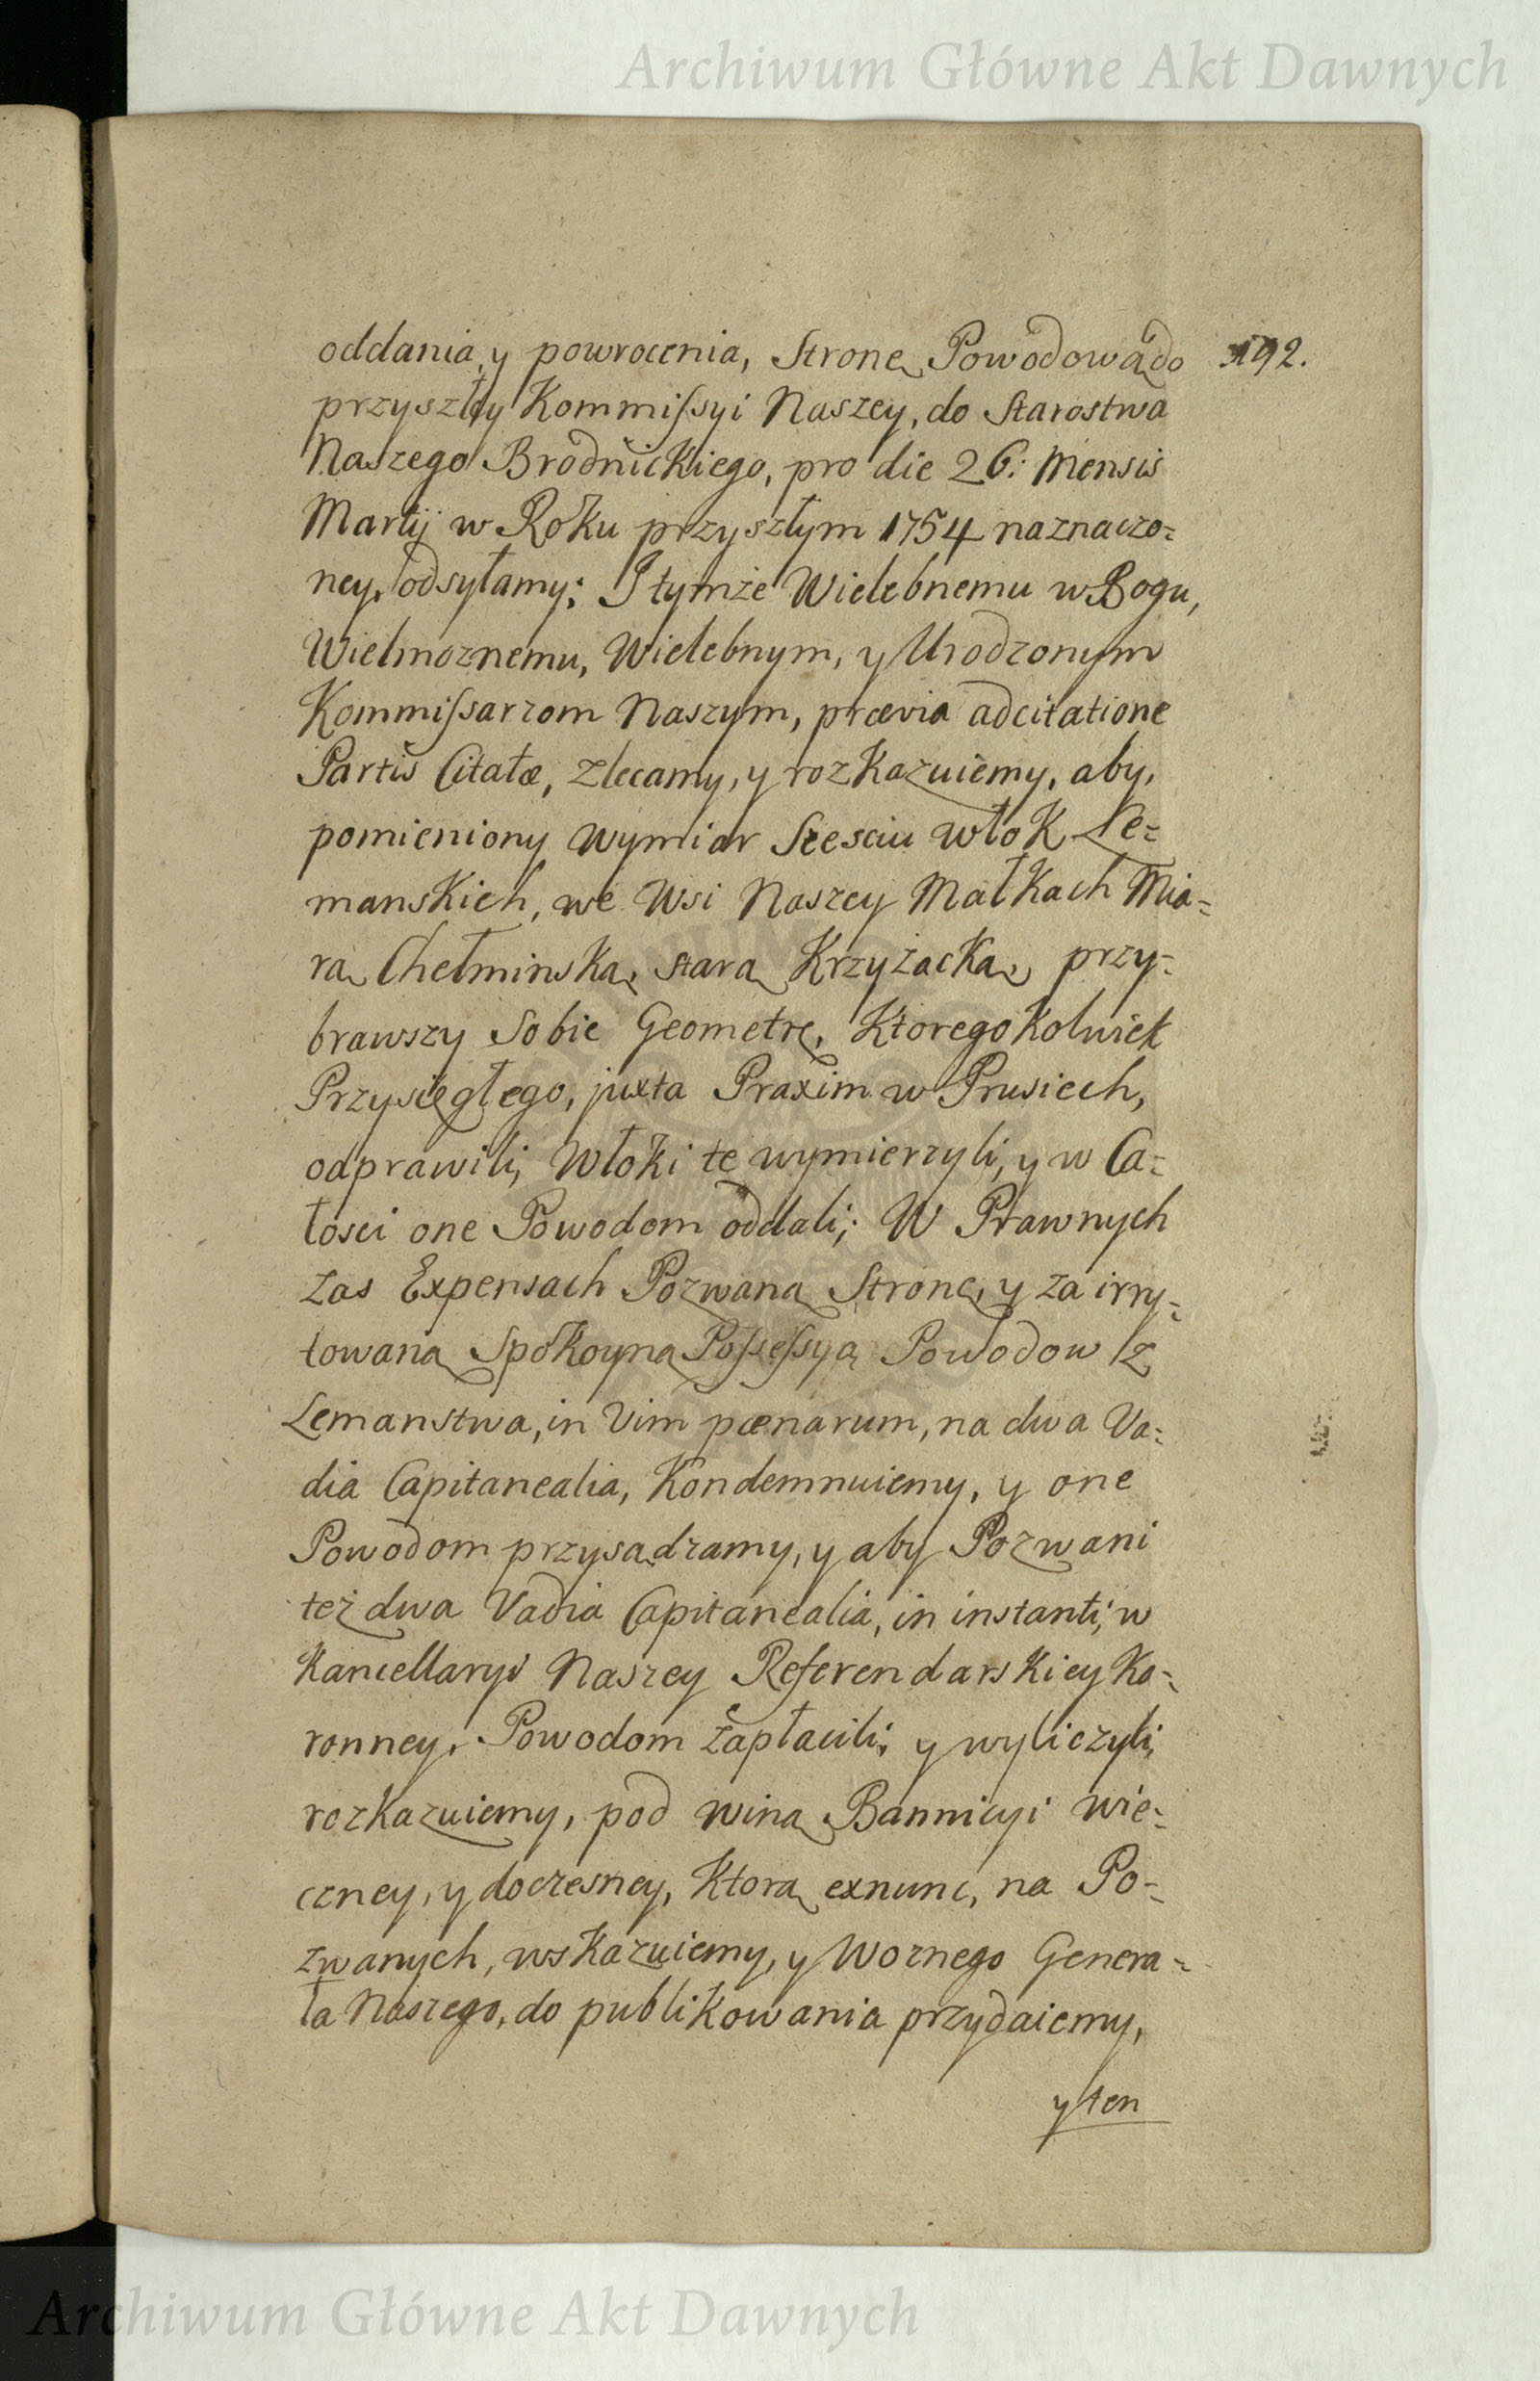 Archiwum Główne Akt Dawnych
192.
oddania, y powrocenia, Stronę Powodową do
przyszłey Kommissyi Naszey, do Starostwa
Naszego Brodnickiego, pro die 26: Mensis
Martij w Roku przyszłym 1754 naznaczo=
ney, odsyłamy; I tymże Wielebnemu w Bogu,
Wielmoznemu, Wielebnym, y Urodzonym
Kommissarzom Naszym, prævia adcitatione
Partis Citatæ, zlecamy, y rozkazuiemy, aby,
pomieniony wymiar Szesciu włok Le=
manskich, we Wsi Naszey Małkach Mia=
rą Chełminską, starą Krzyżacką, przy=
brawszy Sobie Geometrę, Ktoregokolwiek
Przysięgłego, juxta Praxim w Prusiech,
odprawili, Włoki te wymierzyli, y w Ca=
łosci one Powodom oddali; W Prawnych
zas Expensach Pozwaną Stronę, y za irry=
towaną Spokoyną Possessyą Powodow z
Lemanstwa, in Vim pænarum, na dwa Va=
dia Capitanealia, Kondemnuiemy, y one
Powodom przysądzamy, y aby Pozwani
też dwa Vadia Capitanealia, in instanti, w
Kancellaryi Naszey Referendarskiey Ko=
ronney, Powodom zapłacili, y wyliczyli,
rozkazuiemy, pod winą Bannicyi wie=
czney, y doczesney, Ktorą exnunc, na Po=
zwanych, wskazuiemy, y Woznego Genera=
ła Naszego, do publikowania przydaiemy,
y ten
Archiwum Główne Akt Dawnych